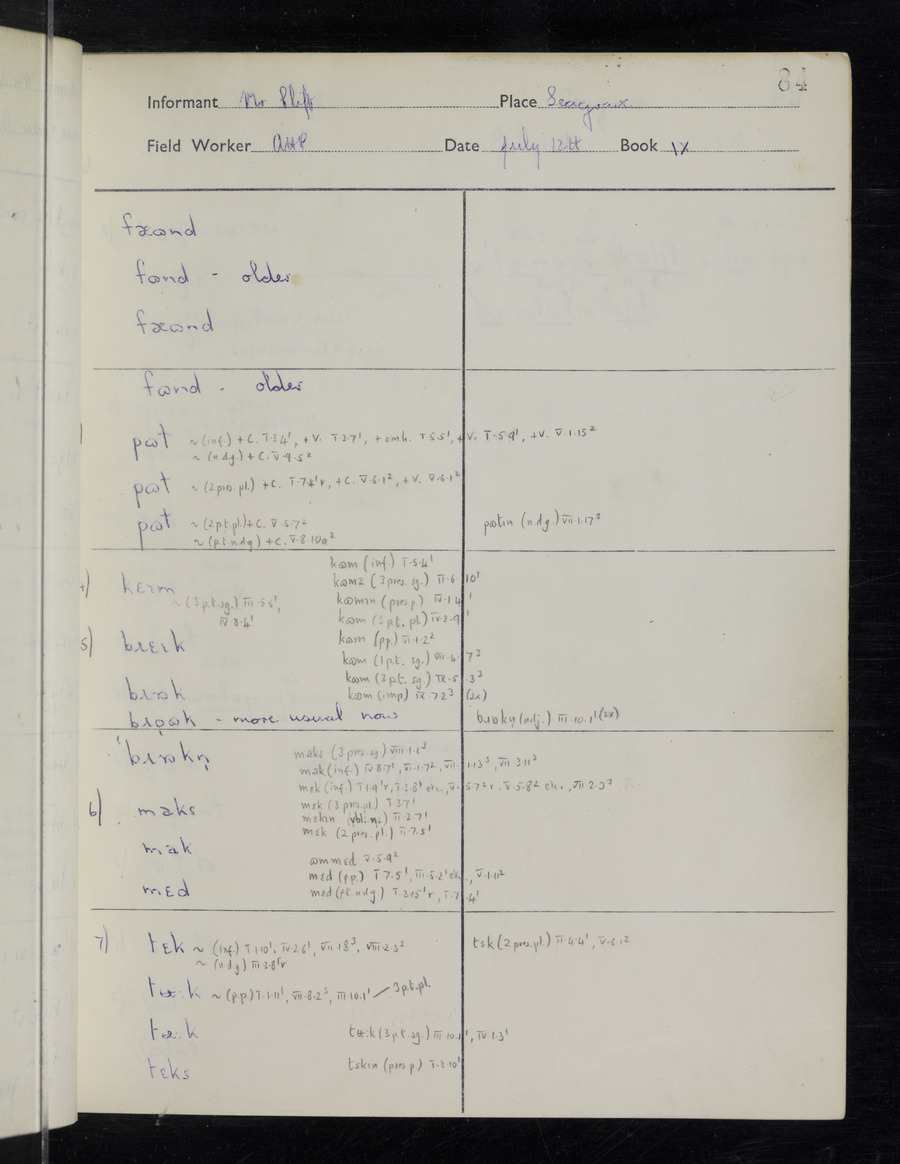 84
Informant Mr Place
Field Worker AHP Date July 12th Book IX
fæɷnd
fɷnd - older
fæɷnd
fɷnd - older
pɷt ~ (inf.) + C. I.3.4¹, + V. I.3.7¹, + omh. I.5.5¹, + V. I.5.9¹, + V. V.1.15²
~ (n.d.g) + C. V.9.5²
pɷt ~ (2 pres. pl.) + C. I.7.4¹r, + C. V.6.1², + V. V.6.1²
pɷt ~ (2 p.t. pl.) + C. V.5.7² pɷtin (n.d.g.) VII.1.17³
~ (p.t. n.d.g) + C. V.8.10a²
kɷm (inf) I.5.4¹
kɷmz (3 pres. sg.) II.6.10¹
~ (3 p.t. sg.) III.5.6¹, kɷmɪn (pres p) IV.1.4¹
IV.8.4¹ kɷm (3 p.t. pl.) IV.2.9¹
5) kɷm (pp) VI.1.2²
kɷm (1 p.t. sg.) VII.4.7³
kɷm (3 p.t. sg.) IX.5.3³
kɷm (imp) IX.7.2³ (2x)
- more usual now (adj.) III.10.1¹ (2x)
maks (3 pres. sg.) VIII.1.1³
mak (inf.) IV.8.7¹, VI.1.7², VII.1.13³, VII.3.11³
mɛk (inf.) I.1.9¹r, I.3.8¹ etc., V.5.7²r, V.5.8² etc., VII.2.9³
6) maks mɛk (3 pres. pl.) I.3.7¹
mɛkin (vbl. n.) II.2.7¹
mɛk (2 pres. pl.) II.7.5¹
mak
ɷmmɛd V.5.9²
mɛd (p.p.) I.7.5¹, III.5.2¹ etc., V.1.11²
mɛd mɛd (p.t. n.d.g) I.3.15¹r, I.7.4¹
7) tɛk ~ (inf.) I.1.10¹, IV.2.6¹, VII.1.8³, VIII.2.3³ tɛk (2 pres. pl.) II.4.4¹, V.6.12
~ (n.d.g) III.3.8¹r
~ (p.p.) I.1.11¹, VII.8.2³, III.10.1¹ 3 p.t. pl.
(3 p.t. sg.) III.10.1¹, IV.1.3¹
tɛks tɛkin (pres. p.) I.2.10¹